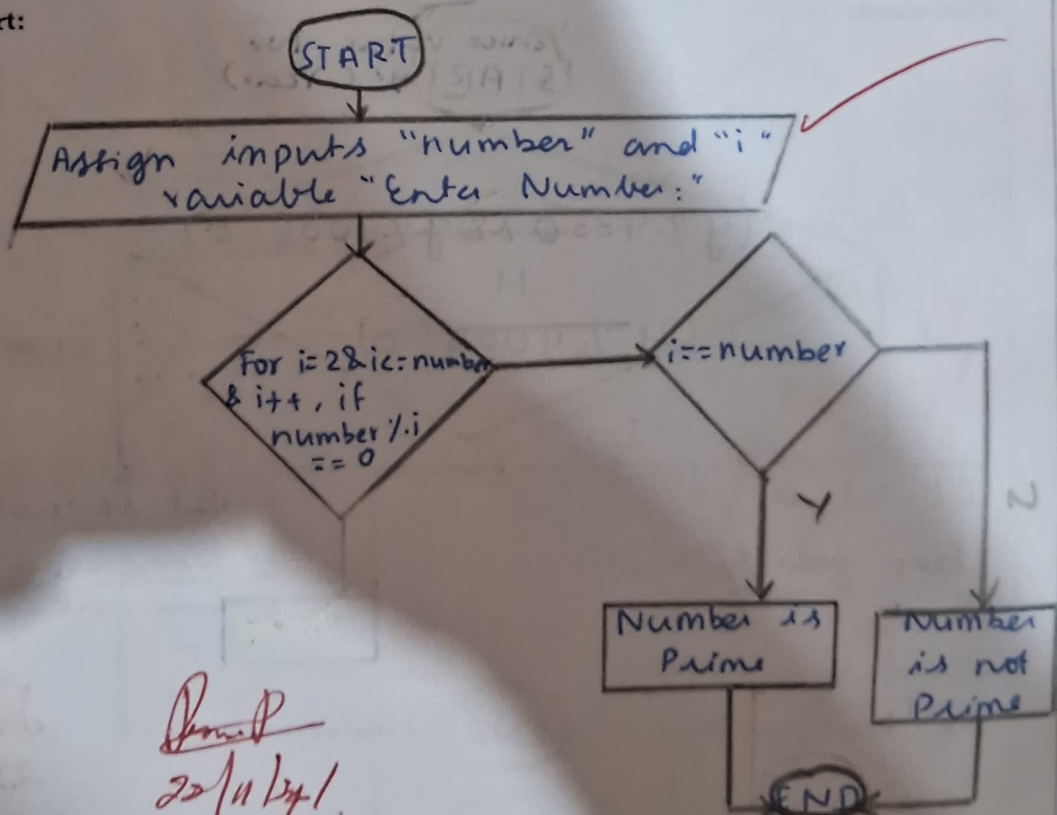 rt:
START
Assign inputs "number" and "i"
variable "Enter Number:"
For i=2&i<=number
& i++, if
number %i
== 0
i==number
Y
N
Number is
Prime
Number
is not
Prime
END
22/11/24